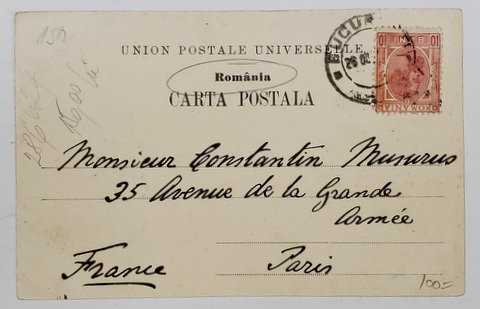 150
UNION POSTALE UNIVERSELLE
România
CARTA POSTALA
BUCU
10 BANI 10
ROMANIA
Monsieur Constantin Musurus
35 Avenue de la Grande
Armée
France Paris
100=